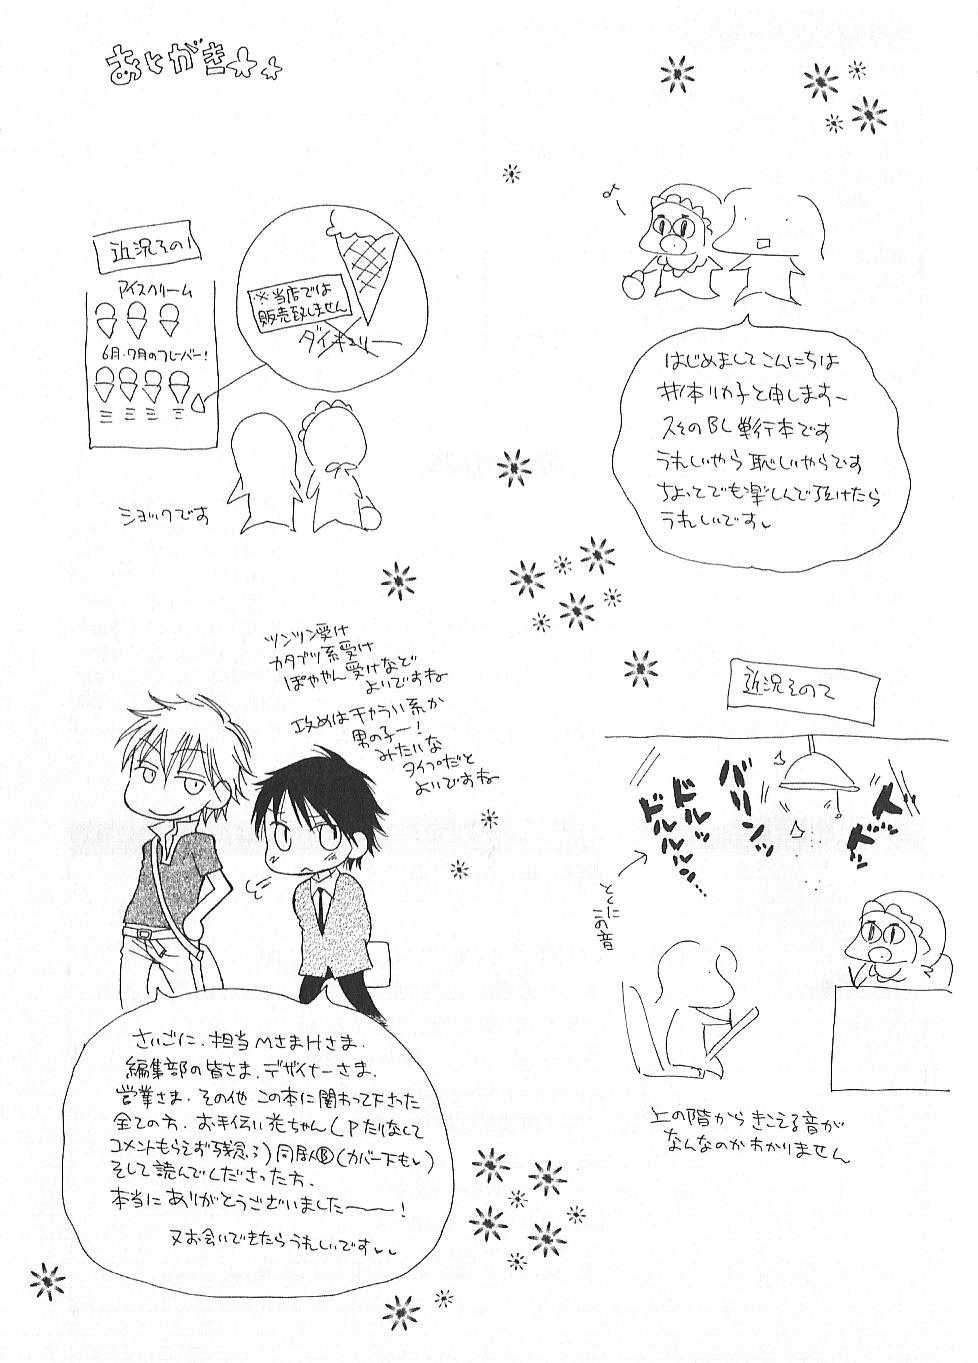 あとがき
はじめましてこんにちは
井本リカ子と申します～
2つめのBL単行本です
うれしいやら恥しいやらです
ちょっとでも楽しんで頂けたら
うれしいです
近況その1
アイスクリーム
6月・7月のフレーバー!
※当店では
販売致しません
ダイキュリー
ショックです
近況その2
バリンッ
ドルルッ
ドルルルルッ…
ドッ
とくに
この音
上の階からきこえる音が
なんなのかわかりません
ツンツン受け
カタブツ系受け
ぽややん受けなど
よいですね
攻めはチャラい系か
男の子ー!
みたいな
タイプだと
よいですね
さいごに、担当MさまHさま、
編集部の皆さま、デザイナーさま、
営業さま、その他 この本に関わって下さった
全ての方、お手伝い花ちゃん(Pたりなくて
コメントもらえず残念;)同居人Ⓑ(カバー下も)
そして読んでくださった方、
本当にありがとうございました～～!
又お会いできたらうれしいです